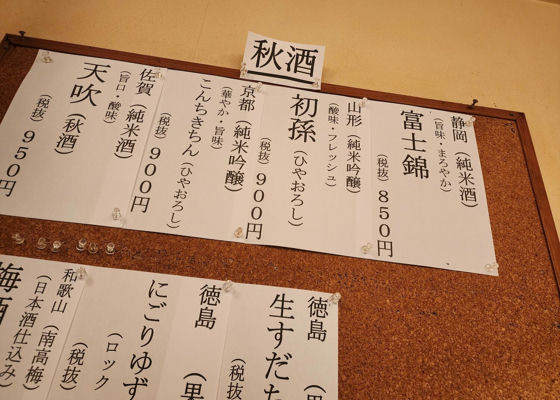 秋酒
静岡（純米酒）
（旨味・まろやか）
富士錦
（税抜）８５０円
山形（純米吟醸）
（酸味・フレッシュ）
初孫（ひやおろし）
（税抜）９００円
京都（純米吟醸）
（華やか・旨味）
こんちきちん（ひやおろし）
（税抜）９００円
佐賀（純米酒）
（旨口・酸味）
天吹（秋酒）
（税抜）９５０円
徳島
生すだち
（税抜）
徳島（果
にごりゆず
（ロック
（税抜）
和歌山（南高梅）
（日本酒仕込み）
梅酒